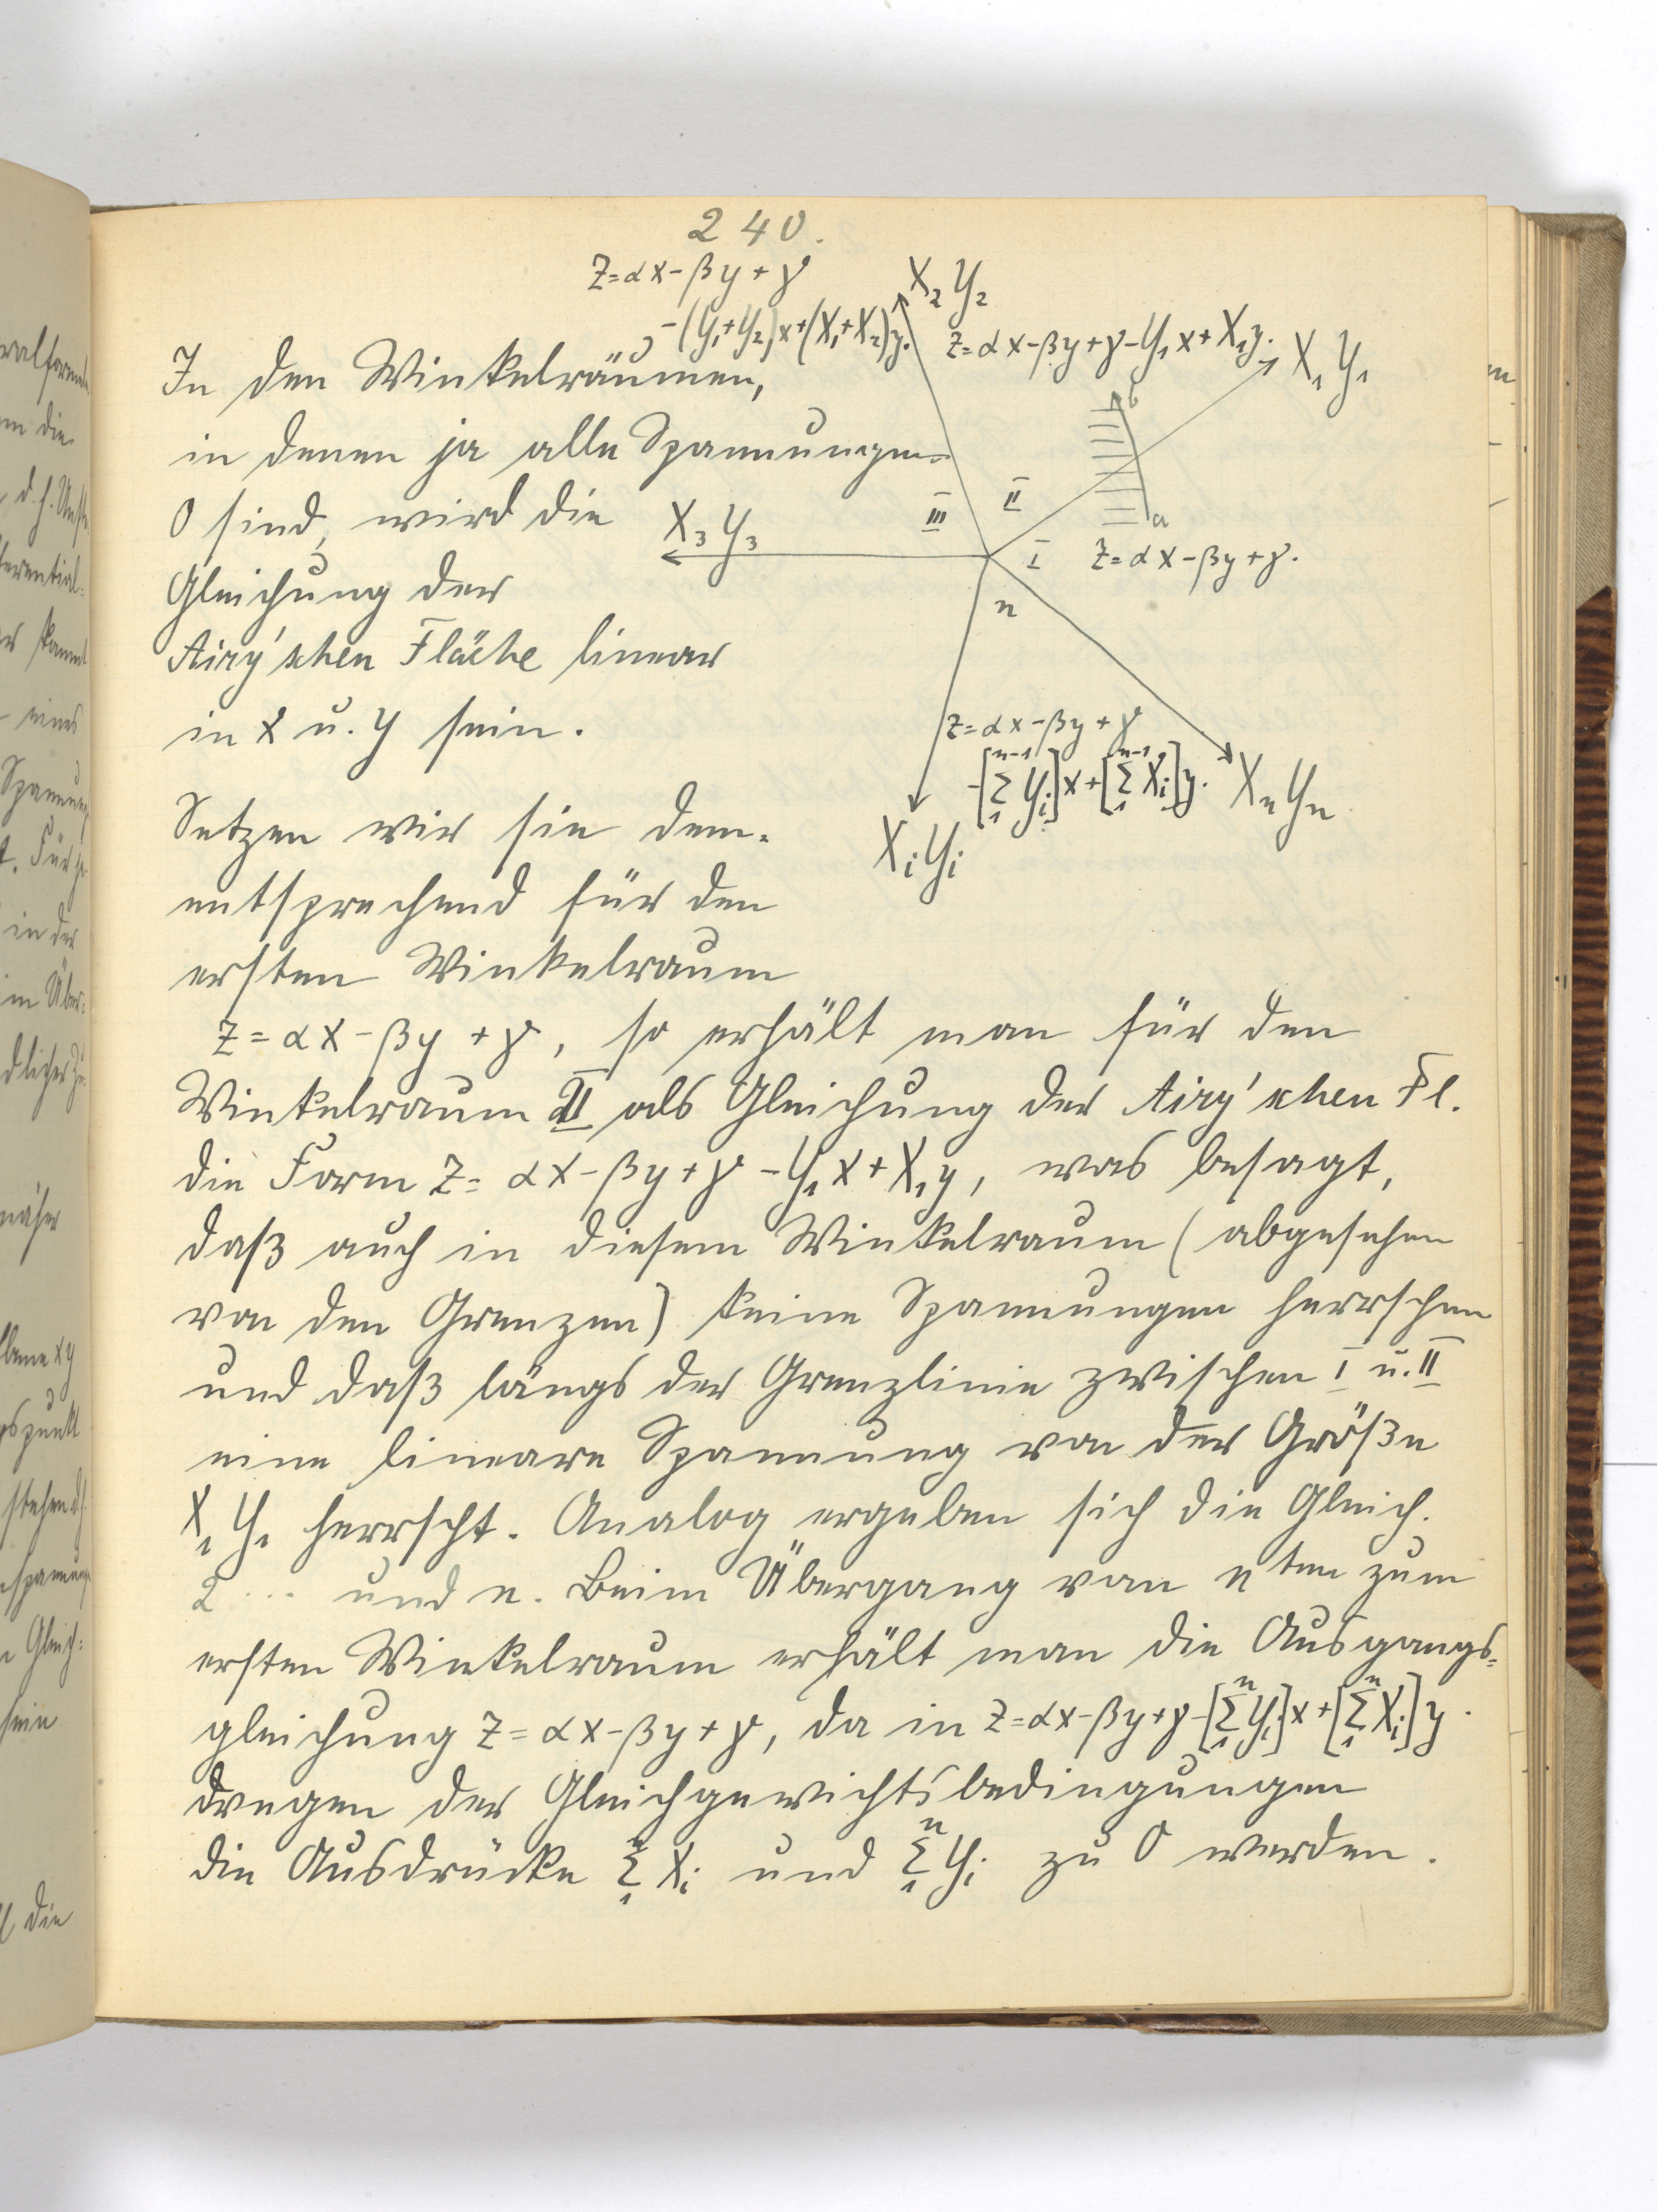 240.
z=αx-βy+γ
-(Y₁+Y₂)x+(X₁+X₂)y.
X₂Y₂
z=αx-βy+γ-Y₁x+X₁y.
X₁Y₁
In den Winkelräumen,
b
in denen ja alle Spannungen
0 sind, wird die
X₃Y₃
III
II
a
I
z=αx-βy+γ.
Gleichung der
n
Airy'schen Fläche linear
in x u. y sein.
z=αx-βy+γ
-[Σ₁ⁿ⁻¹Yᵢ]x+[Σ₁ⁿ⁻¹Xᵢ]y.
XₙYₙ
XᵢYᵢ
Setzen wir sie dem-
entsprechend für den
ersten Winkelraum
z=αx-βy+γ, so erhält man für den
Winkelraum II als Gleichung der Airy'schen Fl.
die Form z=αx-βy+γ-Y₁x+X₁y, was besagt,
daß auch in diesem Winkelraum (abgesehen
von den Grenzen) keine Spannungen herrschen
und daß längs der Grenzlinie zwischen I u. II
eine lineare Spannung von der Größe
X₁Y₁ herrscht. Analog ergeben sich die Gleich.
2 ... und n. Beim Übergang vom nten zum
ersten Winkelraum erhält man die Ausgangs=
gleichung z=αx-βy+γ, da in z=αx-βy+γ-[Σ₁ⁿYᵢ]x+[Σ₁ⁿXᵢ]y.
wegen der Gleichgewichtsbedingungen
die Ausdrücke Σ₁ⁿXᵢ und Σ₁ⁿYᵢ zu 0 werden.